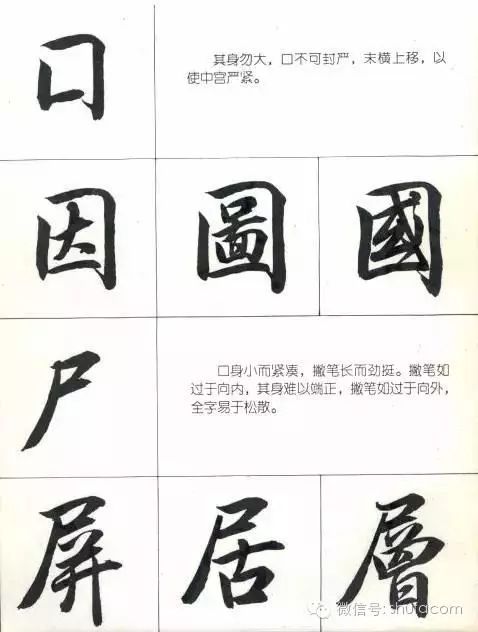 口
其身勿大，口不可封严，末横上移，以
使中宫严紧。
因 圖 國
尸
口身小而紧凑，撇笔长而劲挺。撇笔如
过于向内，其身难以端正，撇笔如过于向外，
全字易于松散。
屏 居 層
微信号: shufdcom